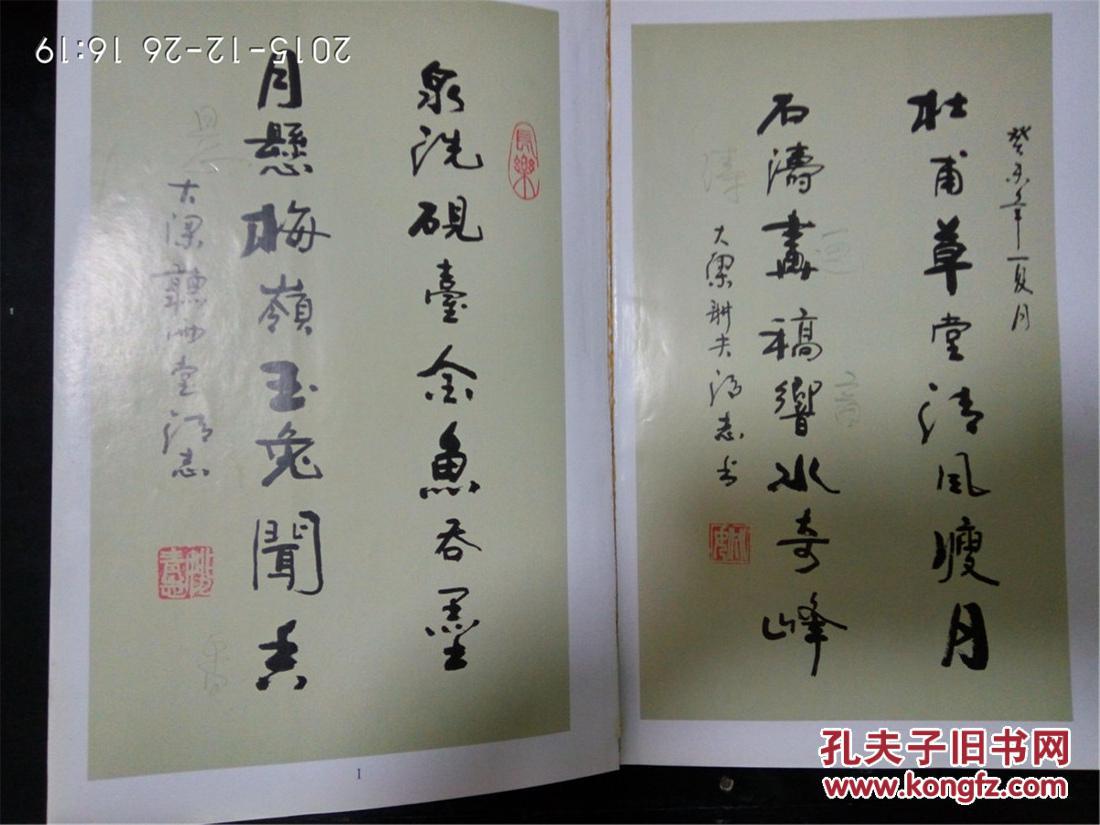 癸未年夏月
杜甫草堂清风瘦月
石濤畫稿響水奇峰
大梁耕夫 志书
長樂
泉洗硯臺金魚吞墨
月懸梅嶺玉兔聞香
大梁聽雨堂 志
1
2015-12-26 16:19
孔夫子旧书网
www.kongfz.com